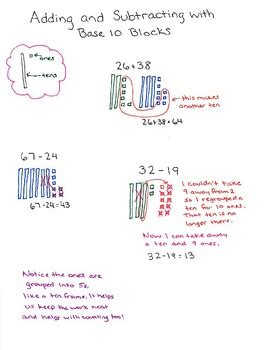 Adding and Subtracting with
Base 10 Blocks
ones
tens
26+38
this makes
another ten
26+38=64
67-24
67-24=43
32-19
I couldn't take
9 away from 2
so I regrouped a
ten for 10 ones.
That ten is no
longer there.
Now I can take away
a ten and 9 ones.
32-19=13
Notice the ones are
grouped into 5s
like a ten frame. It helps
us keep the work neat
and helps with counting too!